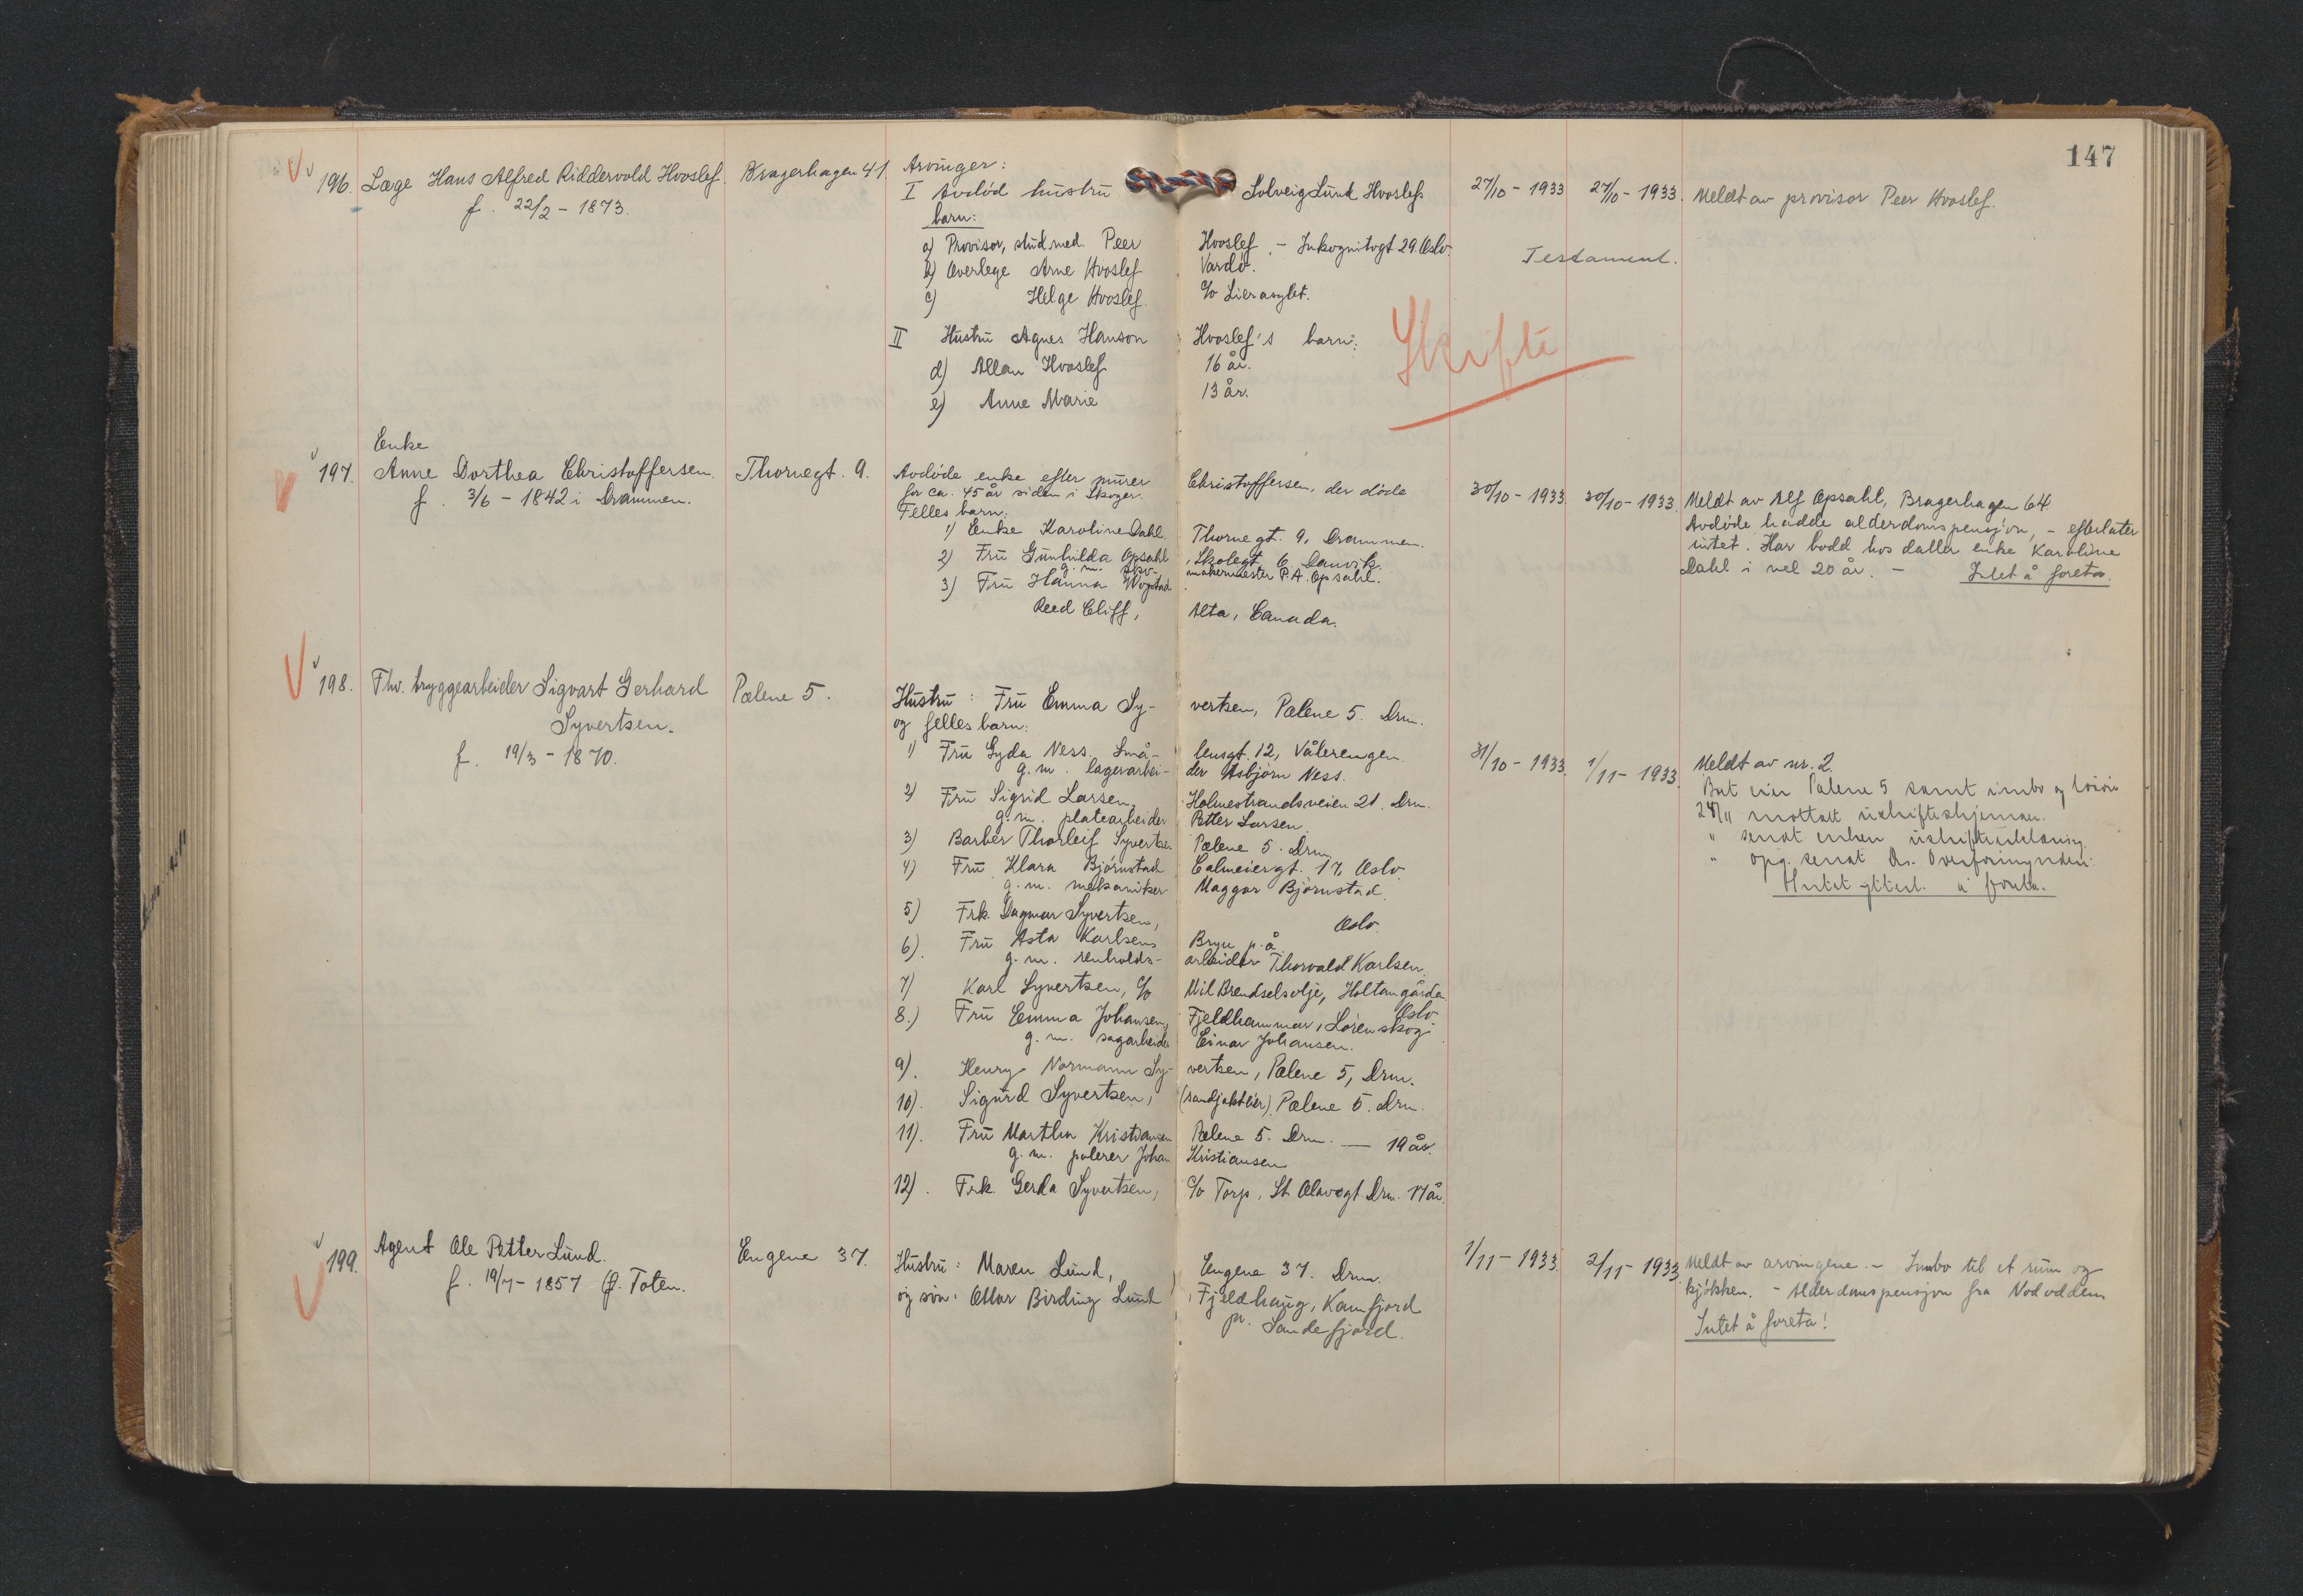 147
196. Læge Hans Alfred Riddervold Hvoslef. Bragerhagen 41. Arvinger:
f. 22/2 - 1873.
I Avdød hustru Solveig Lund Hvoslefs 27/10 - 1933 27/10 - 1933. Meldt av provisor Peer Hvoslef.
barn:
a) Provisor, stud. med. Peer Hvoslef, - Inkognitogt. 29. Oslo. Testament.
b) Overlege Arne Hvoslef Vardø.
c) Helge Hvoslef c/o Lierasylet.
II Hustru Agnes Hanson Hvoslef's barn:
Skifte
d) Allan Hvoslef 16 år.
e) Anne Marie 13 år.
Enke
197. Anne Dorthea Christoffersen. Thornegt. 9. Avdøde enke efter murer Christoffersen, der døde 30/10 - 1933 30/10 - 1933. Meldt av Alf Opsahl, Bragerhagen 64.
f. 3/6 - 1842 i Drammen. for ca. 45 år siden i Skoger. Avdøde hadde alderdomspensjon, - efterlater
Felles barn: intet. Har bodd hos datter enke Karoline
1) Enke Karoline Dahl. Thornegt. 9. Drammen. Dahl i vel 20 år. - Intet å foreta.
2) Fru Gunhilda Opsahl, Skolegt. 6. Danvik.
g. m. sko- makermester P. A. Opsahl.
3) Fru Hanna
Reed Cliff, Alta, Canada.
198. Fhv. bryggearbeider Sigvart Gerhard Pælene 5. Hustru: Fru Emma Sy- vertsen, Pælene 5. Drm.
Syvertsen. og felles barn:
f. 19/3 - 1870. 1) Fru Gyda Ness, Små- lensgt. 12, Vålerengen. 31/10 - 1933. 1/11 - 1933. Meldt av nr. 2.
g. m. lagerarbei- der Asbjørn Ness. Pælene 5 samt innbo og
2) Fru Sigrid Larsen, Holmestrandsveien 21. Drm. mottatt
g. m. platearbeider Petter Larsen. " sendt enken
3) Barber Thorleif Syvertsen Pælene 5. Drm. " opg. sendt
4) Fru Klara Bjørnstad Calmeiergt. 17, Oslo.
g. m. mekaniker Maggar Bjørnstad.
5) Frk. Dagmar Syvertsen, Oslo.
6). Fru Asta Karlsen, Bryn p. å.
g. m. renholds- arbeider Thorvald Karlsen.
7) Karl Syvertsen, c/o Mil Brendselsolje, Holtangården
Oslo
8.) Fru Emma Johansen, Fjeldhammar, Lørenskog.
g. m. sagarbeider Einar Johansen.
9). Henry Normann Sy- vertsen, Pælene 5, Drm.
10). Sigurd Syvertsen, (sandjakteier) Pælene 5. Drm.
11). Fru Martha Kristiansen Pælene 5. Drm. — 19 år.
g. m. polerer Johan Kristiansen
12). Frk. Gerda Syvertsen, c/o Torp, St. Olavsgt. Drm. 17 år.
199. Agent Ole Petter Lund. Engene 37. Hustru: Maren Lund, Engene 37. Drm. 1/11 - 1933. 2/11 - 1933. Meldt av arvingene. - Innbo til et rum og
f. 19/7 - 1857 Ø. Toten. og søn: Ottar Birding Lund, Fjeldhaug, Kamfjord kjøkken. - Alderdomspensjon fra Notodden
pr. Sandefjord. Intet å foreta!